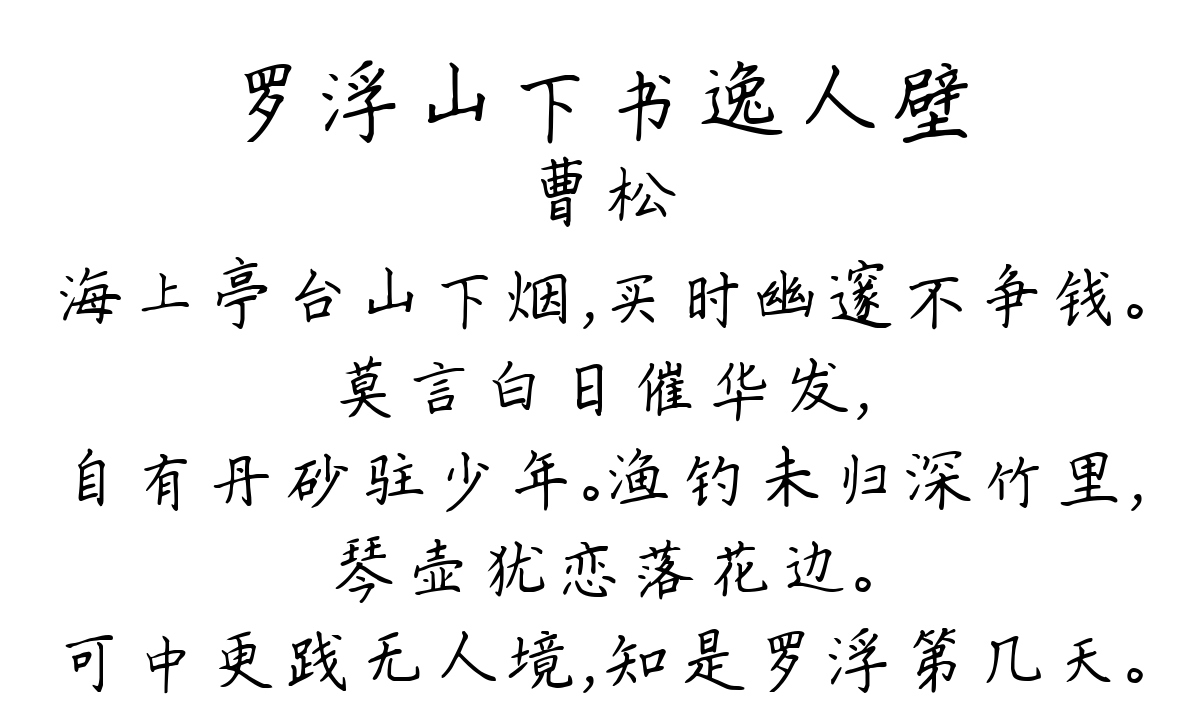 罗浮山下书逸人壁
曹松
海上亭台山下烟,买时幽邃不争钱。
莫言白日催华发,
自有丹砂驻少年。渔钓未归深竹里,
琴壶犹恋落花边。
可中更践无人境,知是罗浮第几天。